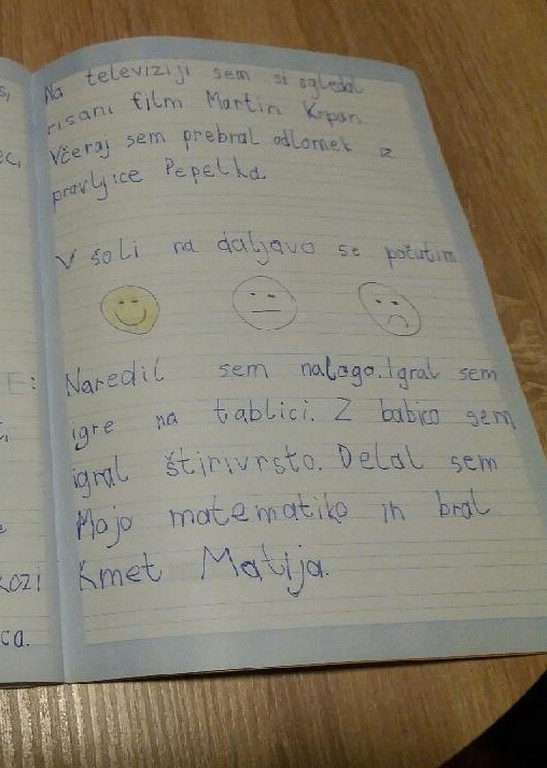 Na televiziji sem si ogledal
risani film Martin Krpan.
Včeraj sem prebral odlomek iz
pravljice Pepelka.
V šoli na daljavo se počutim
Naredil sem nalogo. Igral sem
igre na tablici. Z babico sem
igral štirivrsto. Delal sem
Mojo matematiko in bral
Kmet Matija.
s,
ec,
E:
kozi
ca.